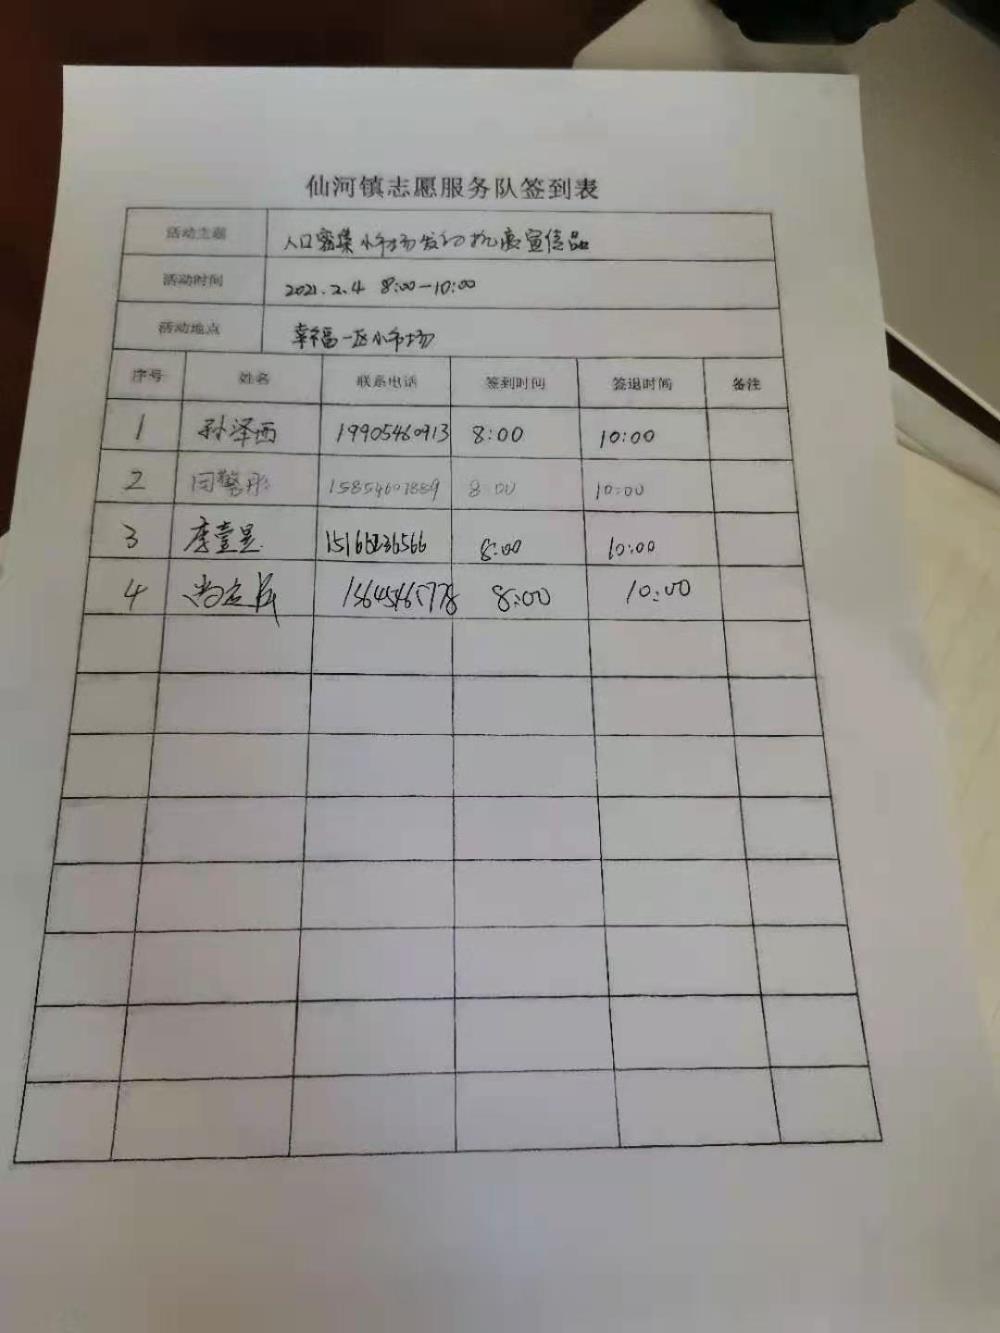 仙河镇志愿服务队签到表
活动主题 人口密集小市场发动抗疫宣传品
活动时间 2021.2.4 8:00-10:00
活动地点 幸福一区小市场
序号 姓名 联系电话 签到时间 签退时间 备注
1 孙泽西 19905460913 8:00 10:00
2 闫馨彤 8:00 10:00
3 8:00 10:00
4 8:00 10:00